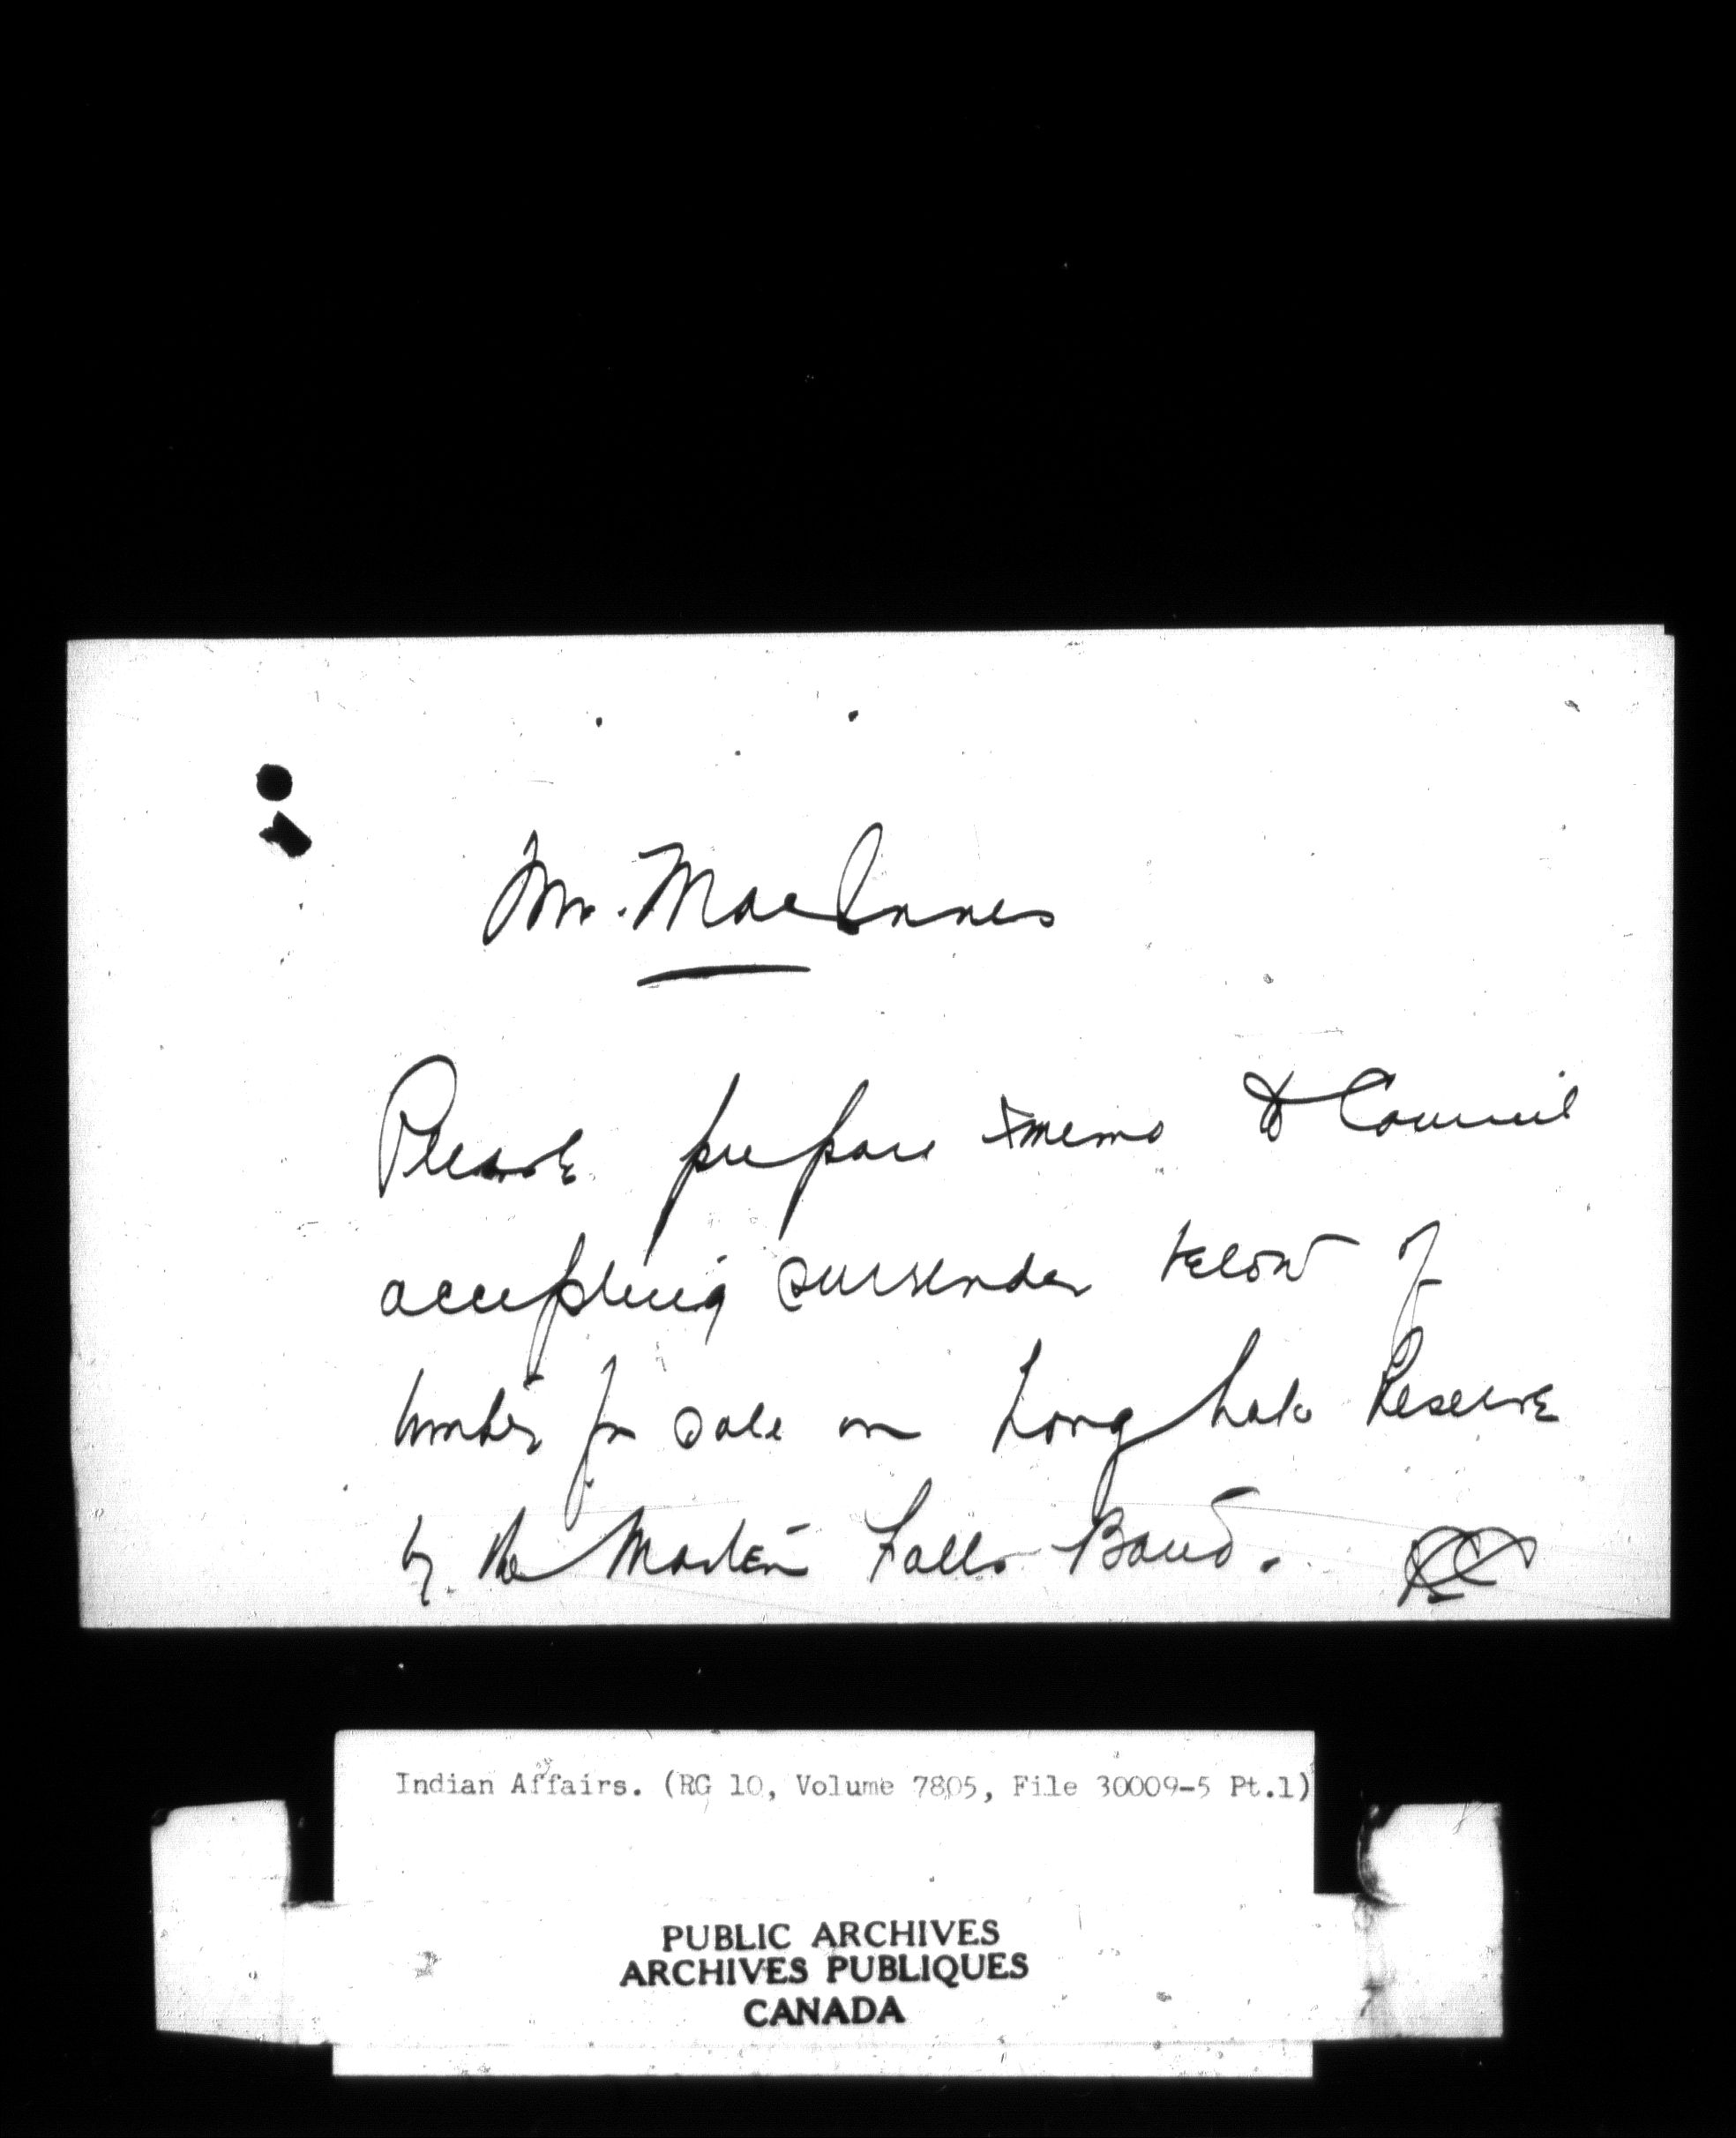 Mr. MacInnes
Please prepare memo to Council
accepting surrender below of
timber for sale on Long Lake Reserve
by the Marten Falls Band.
Indian Affairs. (RG 10, Volume 7805, File 30009-5 Pt.1)
PUBLIC ARCHIVES
ARCHIVES PUBLIQUES
CANADA